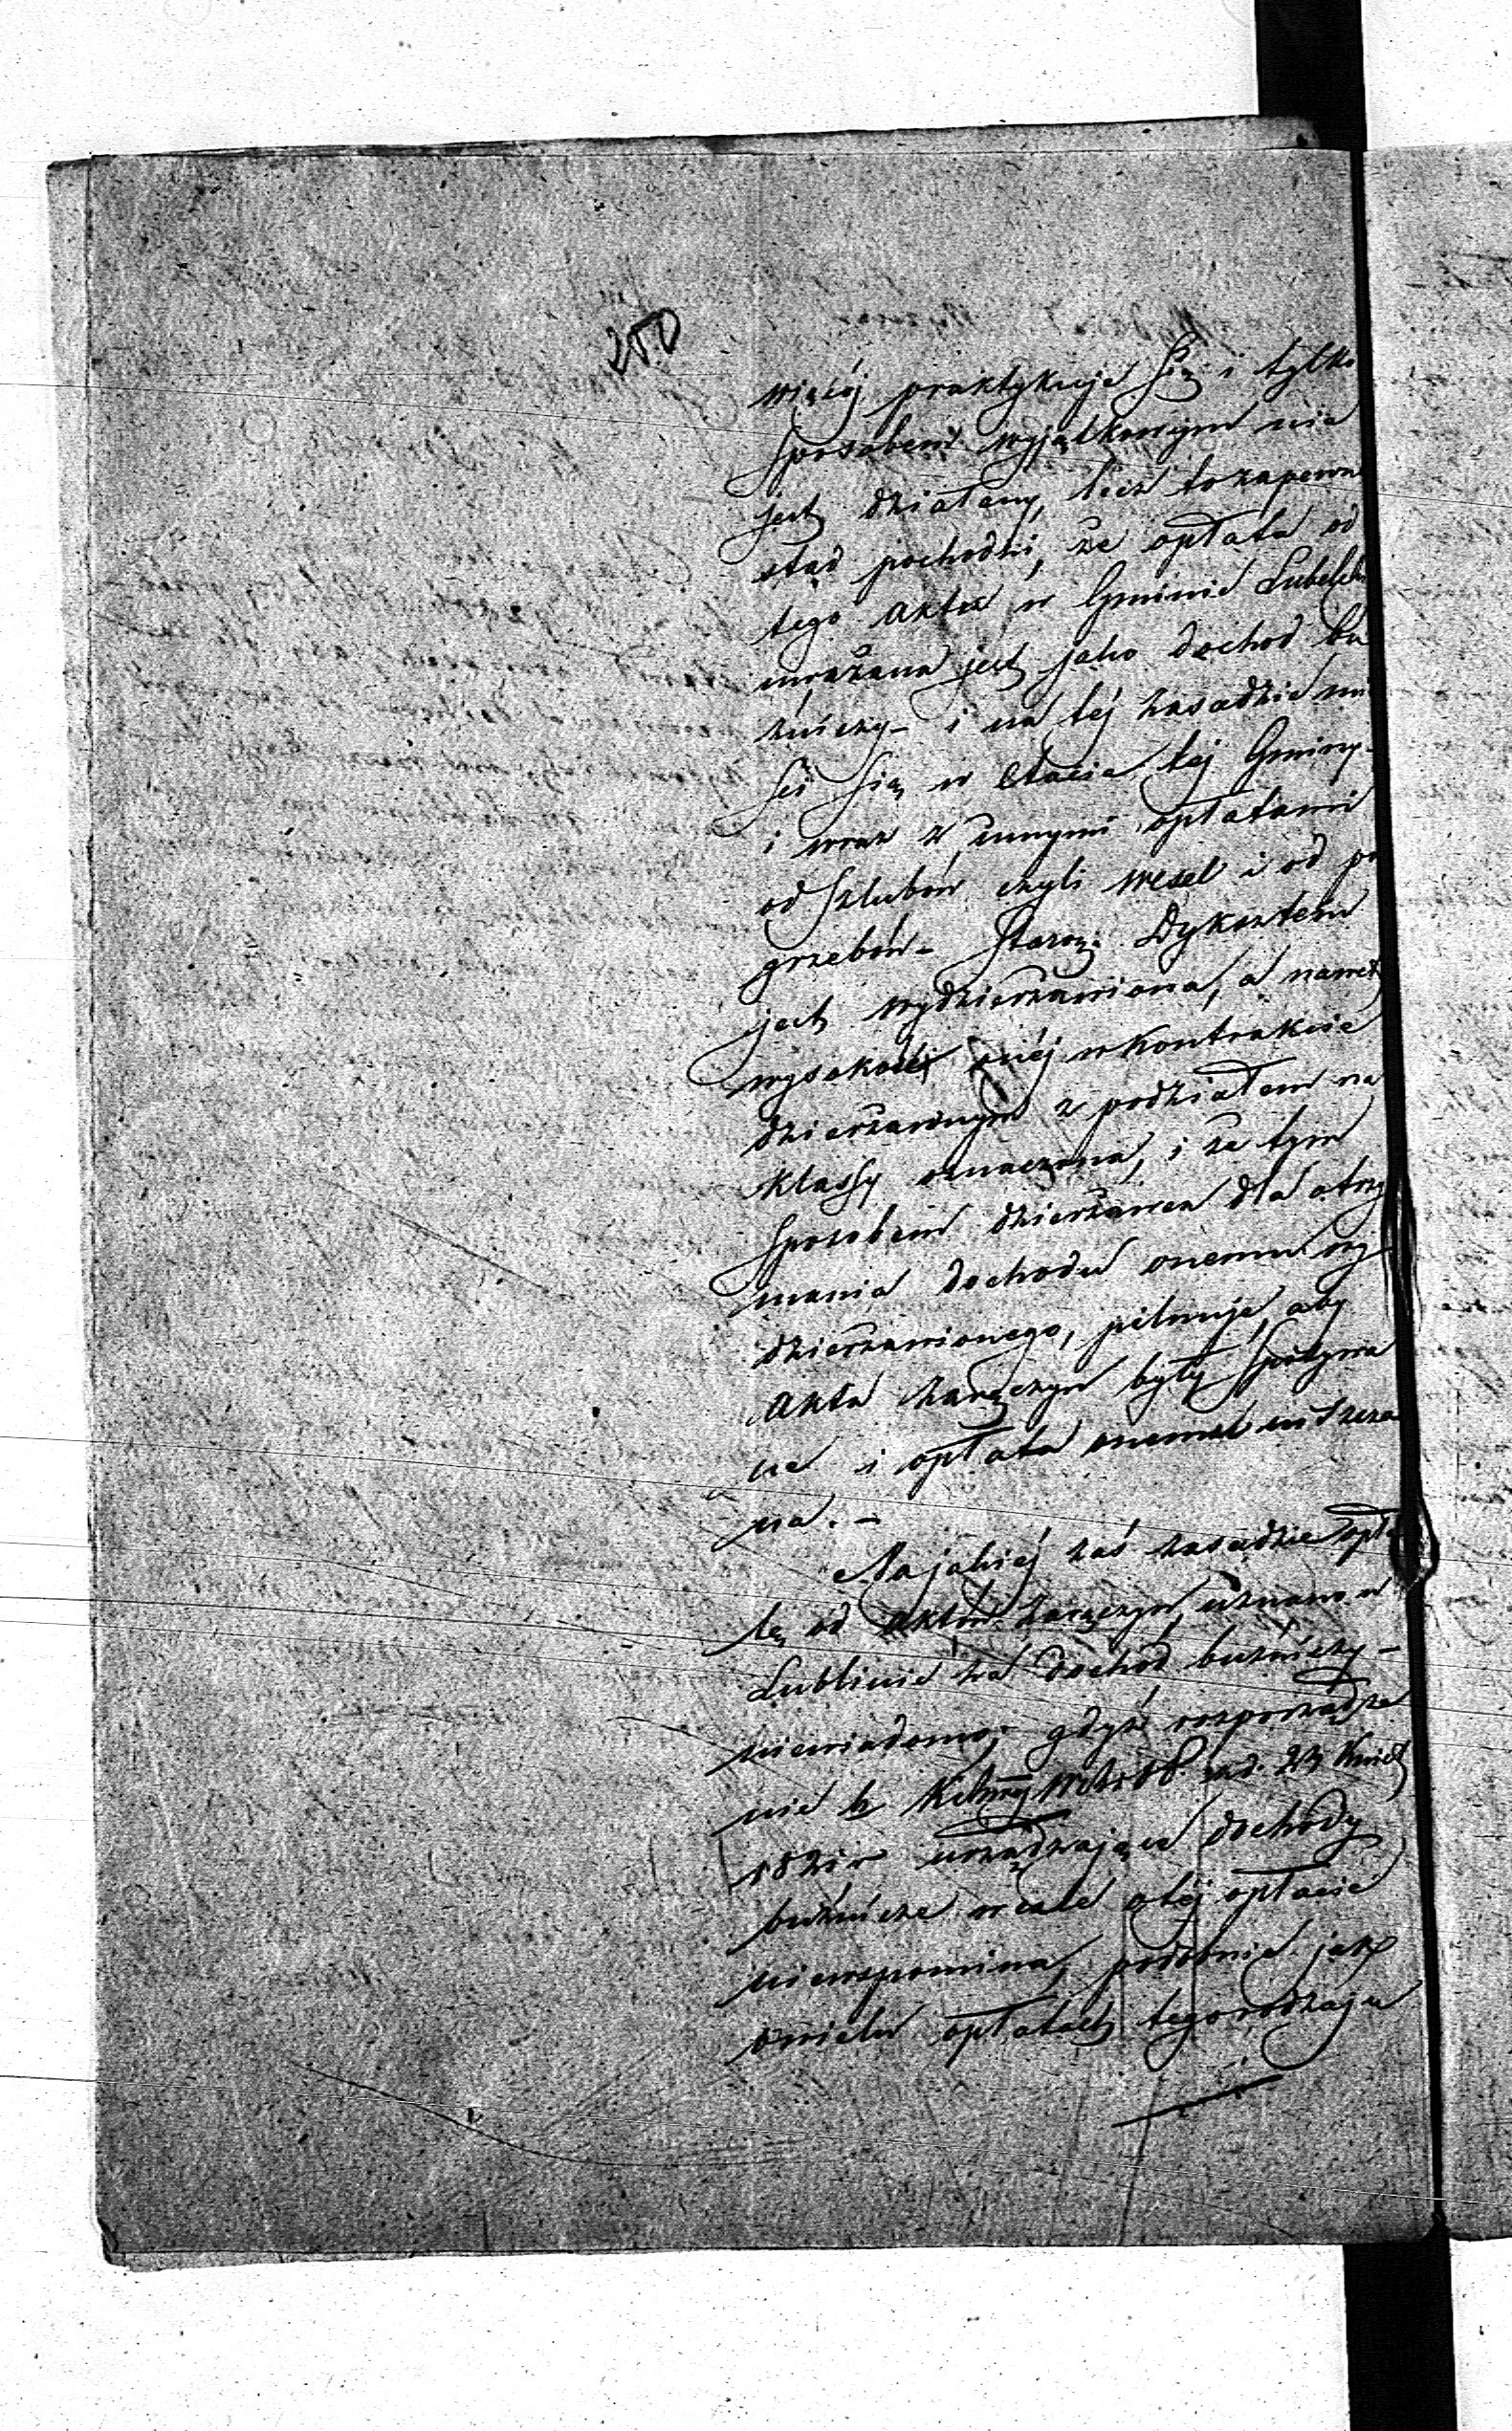 250
więcéj praktykuje się i tylko
sposobem wyjątkowym nie
jest działany, lecz to zapewne
stąd pochodzi, że opłata od
tego aktu w Gminie Lubelski
uważana jest jako dochod bu
źniczy - i na téj zasadzie mie
ści się w Etacie téj Gminy -
i wraz z innymi opłatami
od szlubów czyli wesel i od po
grzebów - Staroz: Dykoztem
jest wydzierżawiona, a nawet
wysokość onéj w kontrakcie
dzierżawnym z podziałem na
klassy oznaczona, i że tym
sposobem dzierżawca dla otrzy
mania dochodu onemu wy
dzierżawionego, pilnuje, aby
akta zaręczyn były spisywa
ne i opłata onemu uiszcza
na. -
Na jakiéj zaś zasadzie opła
tę od aktów zaręczyn, uznano w
Lublinie za dochod bużniczy -
niewiadomo; gdyż rozporządze
nie b. z d. 27 Kwiet
1821 r urządzające dochody
bużnicze wcale o téj opłacie
niewspomina, podobnie jak
o wielu opłatach tego rodzaju